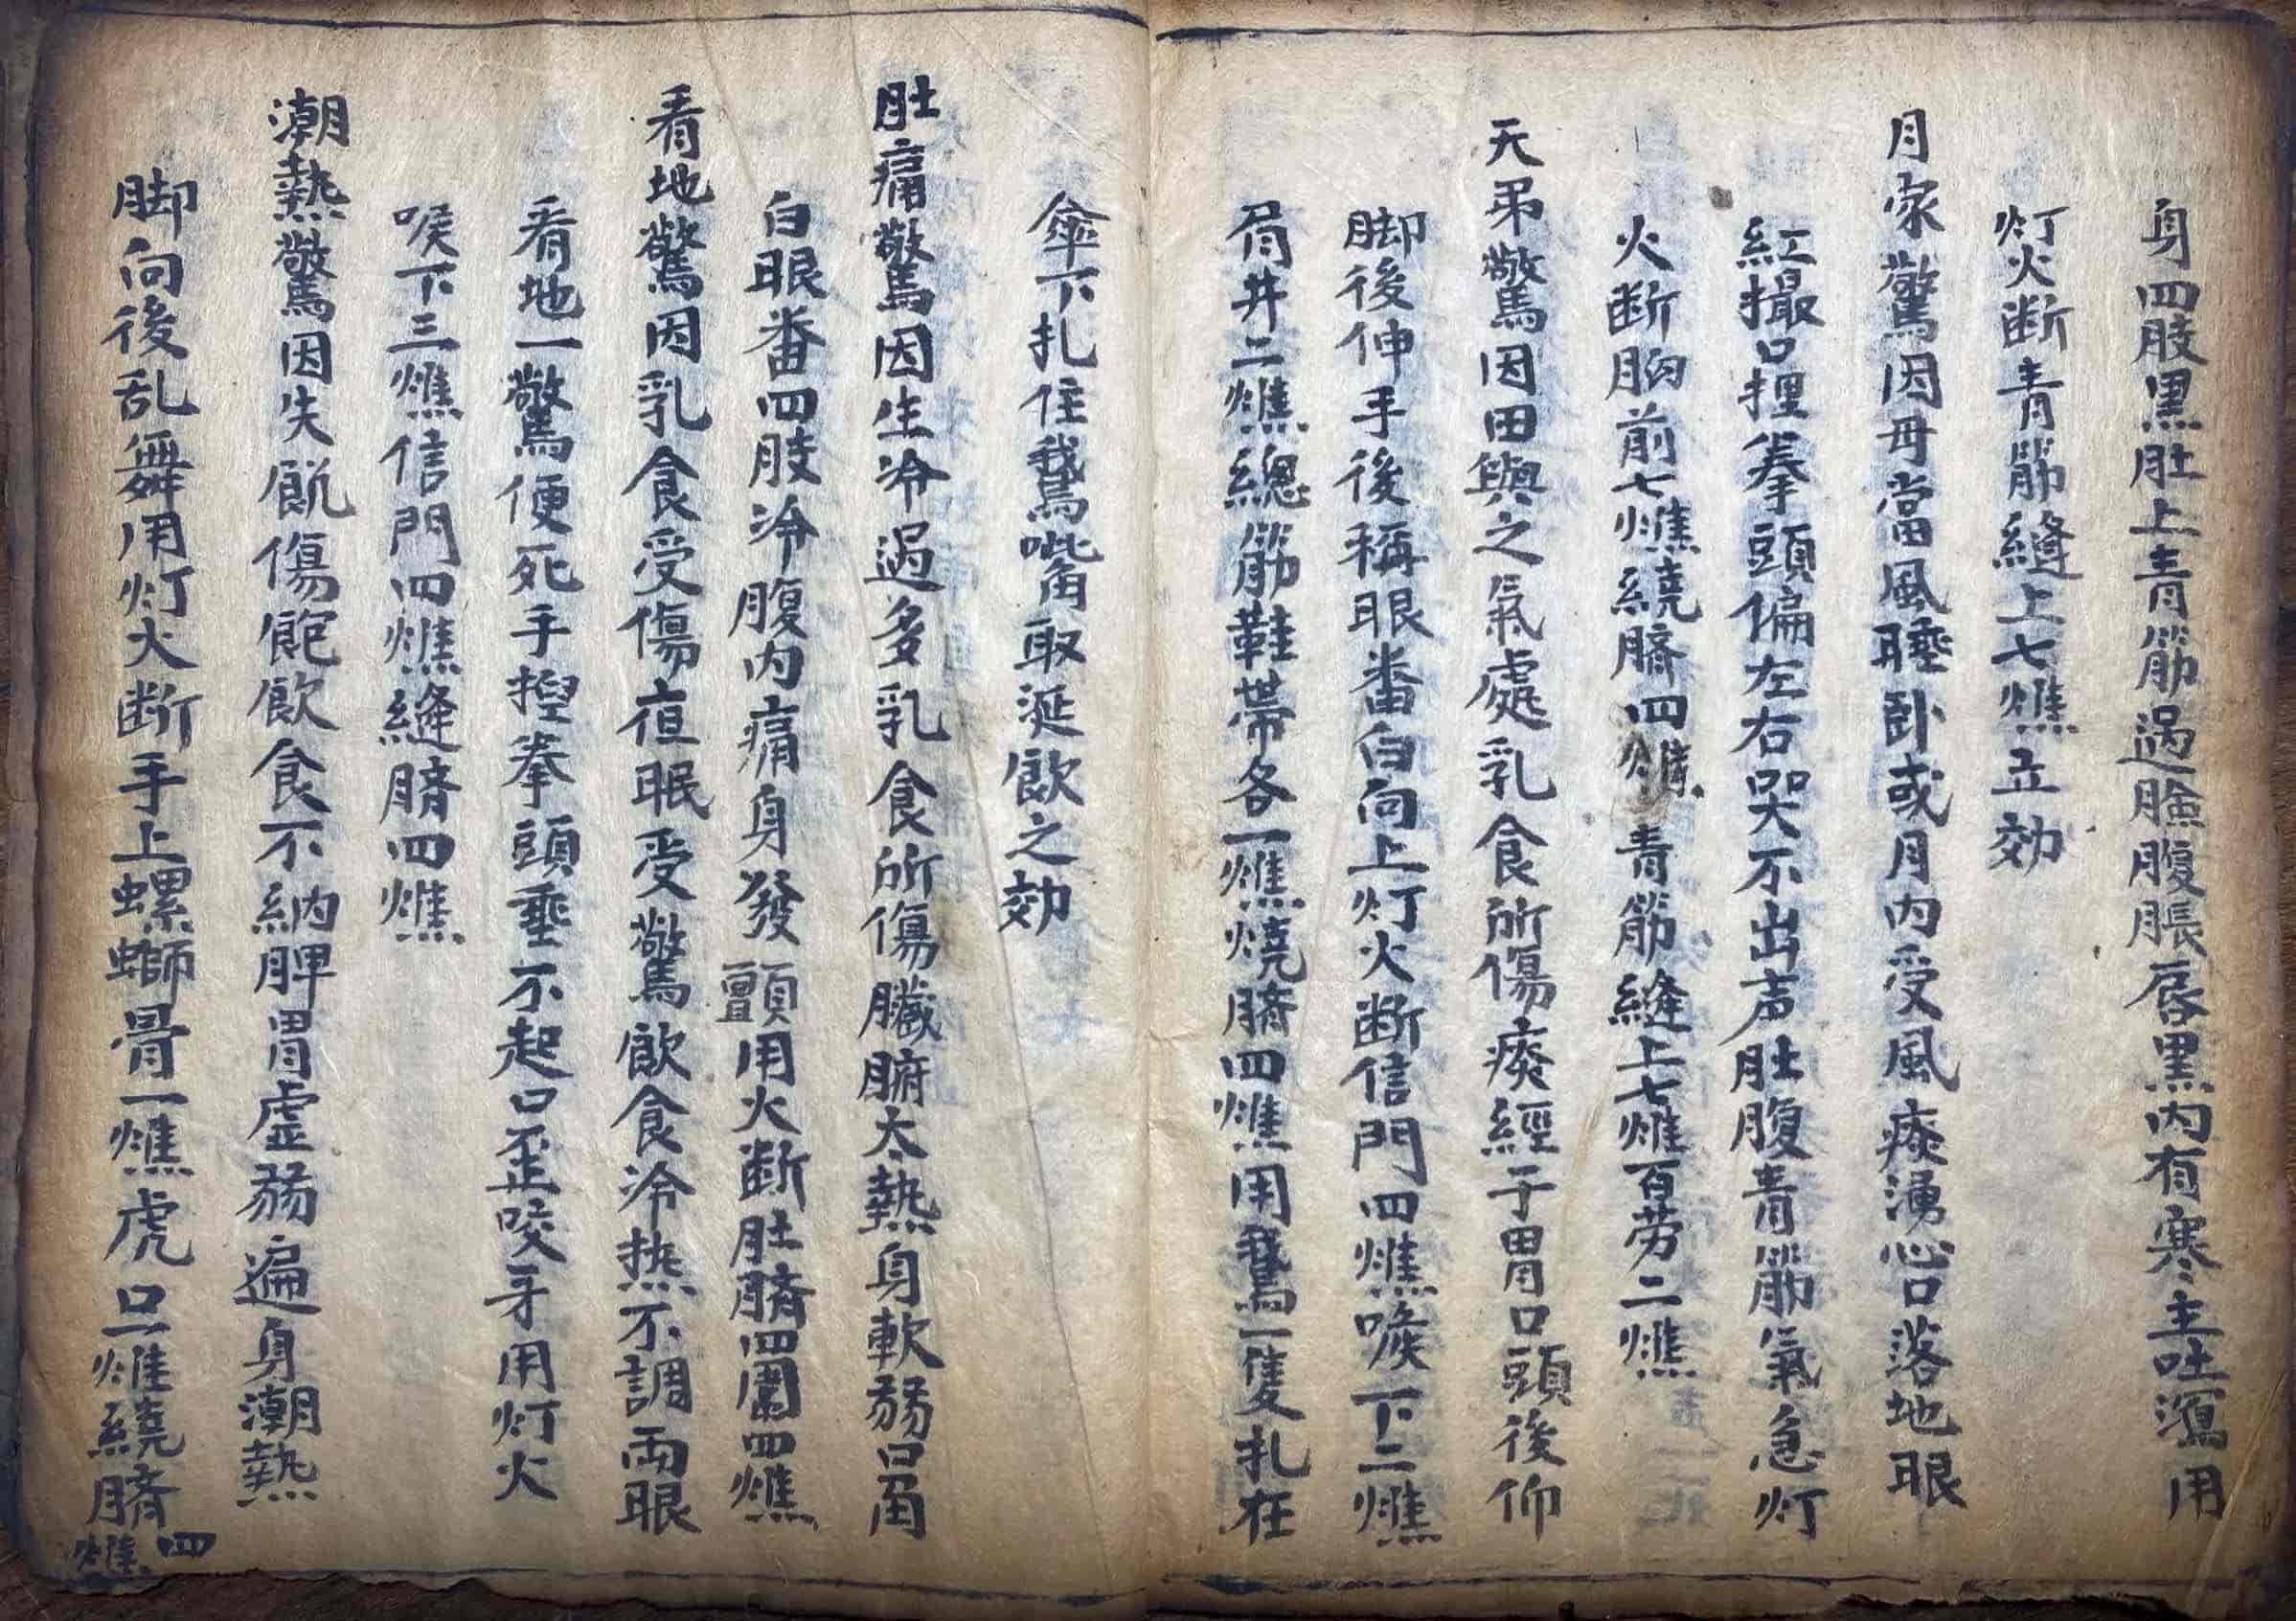 身四肢黑肚上青筋過臉腹脹唇黑内有寒主吐瀉用
灯火断青筋縫上七燋立効
月家驚因母當風睡卧或月内受風痰湧心口落地眼
紅撮口捏拳頭偏左右哭不出声肚腹青筋氣急灯
火断胸前七燋繞臍四燋青筋縫上七燋百劳二燋
天弔驚因田與之氣處乳食所傷痰經于胃口頭後仰
脚後伸手後稱眼番白向上灯火断信門四燋喉下二燋
肩井二燋總筋鞋帶各一燋燒臍四燋用鵞一隻扎在
傘下扎住鵞嘴取涎飲之効
肚痛驚因生冷過多乳食所傷臟腑太熱身軟弱口
白眼番四肢冷腹内痛身發顫用火断肚臍四圍四燋
看地驚因乳食受傷夜眠受驚飲食冷热不調両眼
看地一驚便死手捏拳頭垂不起口歪咬牙用灯火
喉下三燋信門四燋縫臍四燋
潮熱驚因失飢傷飽飲食不納脾胃虚弱遍身潮熱
脚向後乱舞用灯火断手上螺螄骨一燋虎口一燋繞臍四燋